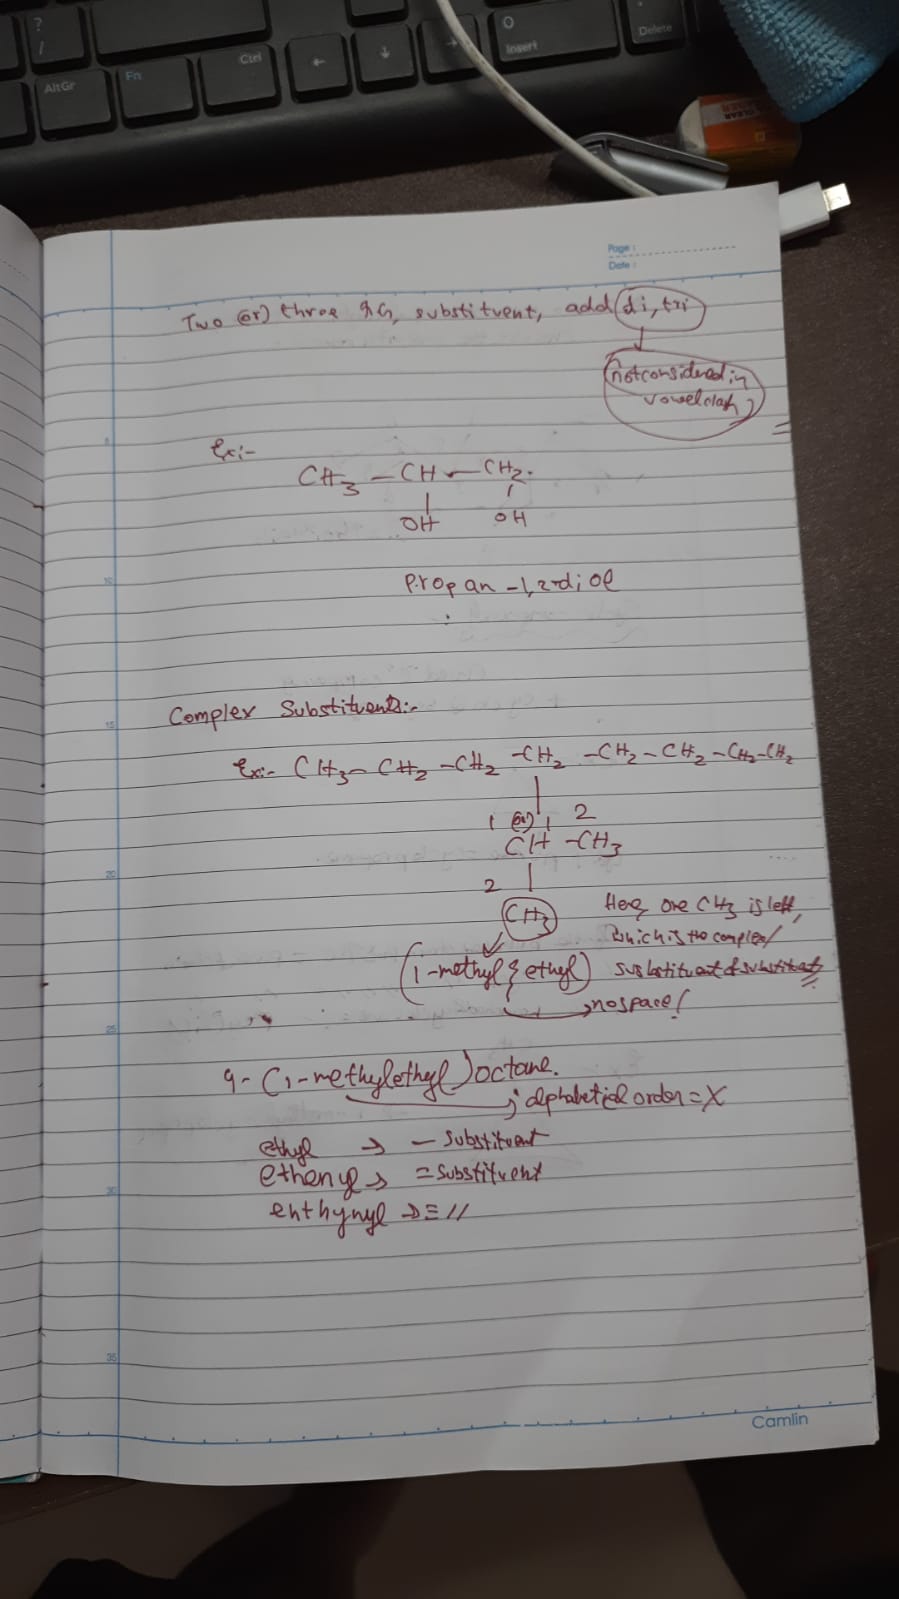 ?
/
AltGr
Fn
Ctrl
←
↓
→
O
Insert
Delete
Page :
Date :
Two (or) three substituent, add di, tri
not considered in
vowel clash
Ex:-
CH3 – CH – CH2.
OH OH
Propan -1,2-diol
Complex Substituents:-
Ex:- CH3 – CH2 – CH2 – CH2 – CH2 – CH2 – CH2 – CH2
1 (or) 1 2
CH – CH3
2
CH3
Here, one CH3 is left,
which is the complex/
(1-methyl ethyl) substituent of substituent
no space!
4- (1-methylethyl) octane.
alphabetical order = X
ethyl → – substituent
ethenyl → = substituent
enthynyl → ≡ //
5
10
15
20
25
30
35
Camlin